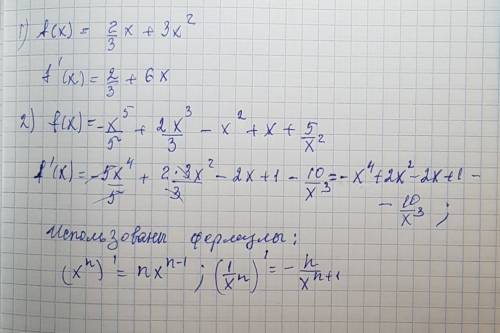 1) f(x) = 2/3 x + 3x²
f'(x) = 2/3 + 6x
2) f(x) = -x⁵/5 + 2x³/3 - x² + x + 5/x²
f'(x) = -5x⁴/5 + 2·3x²/3 - 2x + 1 - 10/x³ = -x⁴ + 2x² - 2x + 1 -
- 10/x³ ;
Использованы формулы :
(xⁿ)' = nxⁿ⁻¹ ; (1/xⁿ)' = - n/xⁿ⁺¹